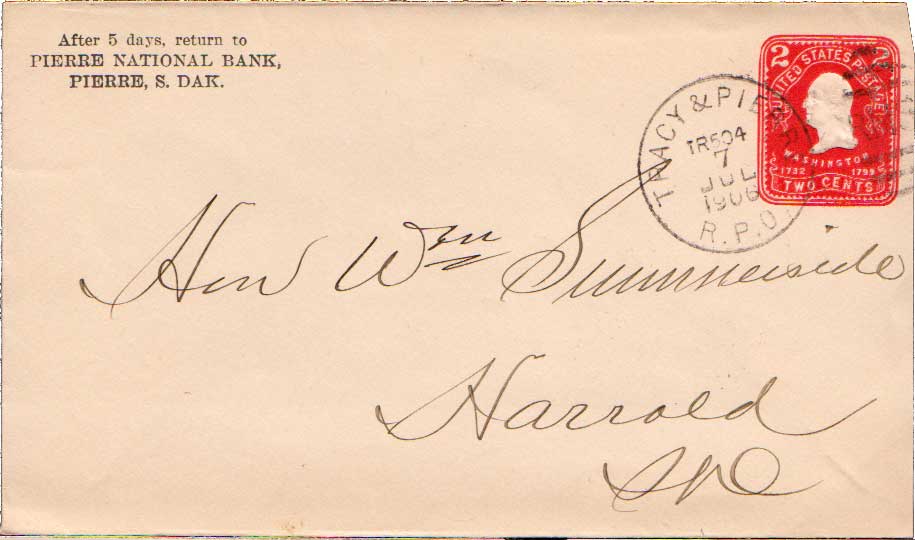 After 5 days, return to
PIERRE NATIONAL BANK,
PIERRE, S. DAK.
2
UNITED STATES POSTAGE
WASHINGTON
1732 1799
TWO CENTS
TRACY & PIERRE
TR504
7
JUL
1906
R.P.O.
Hon Wm Summerside
Harrold
SD